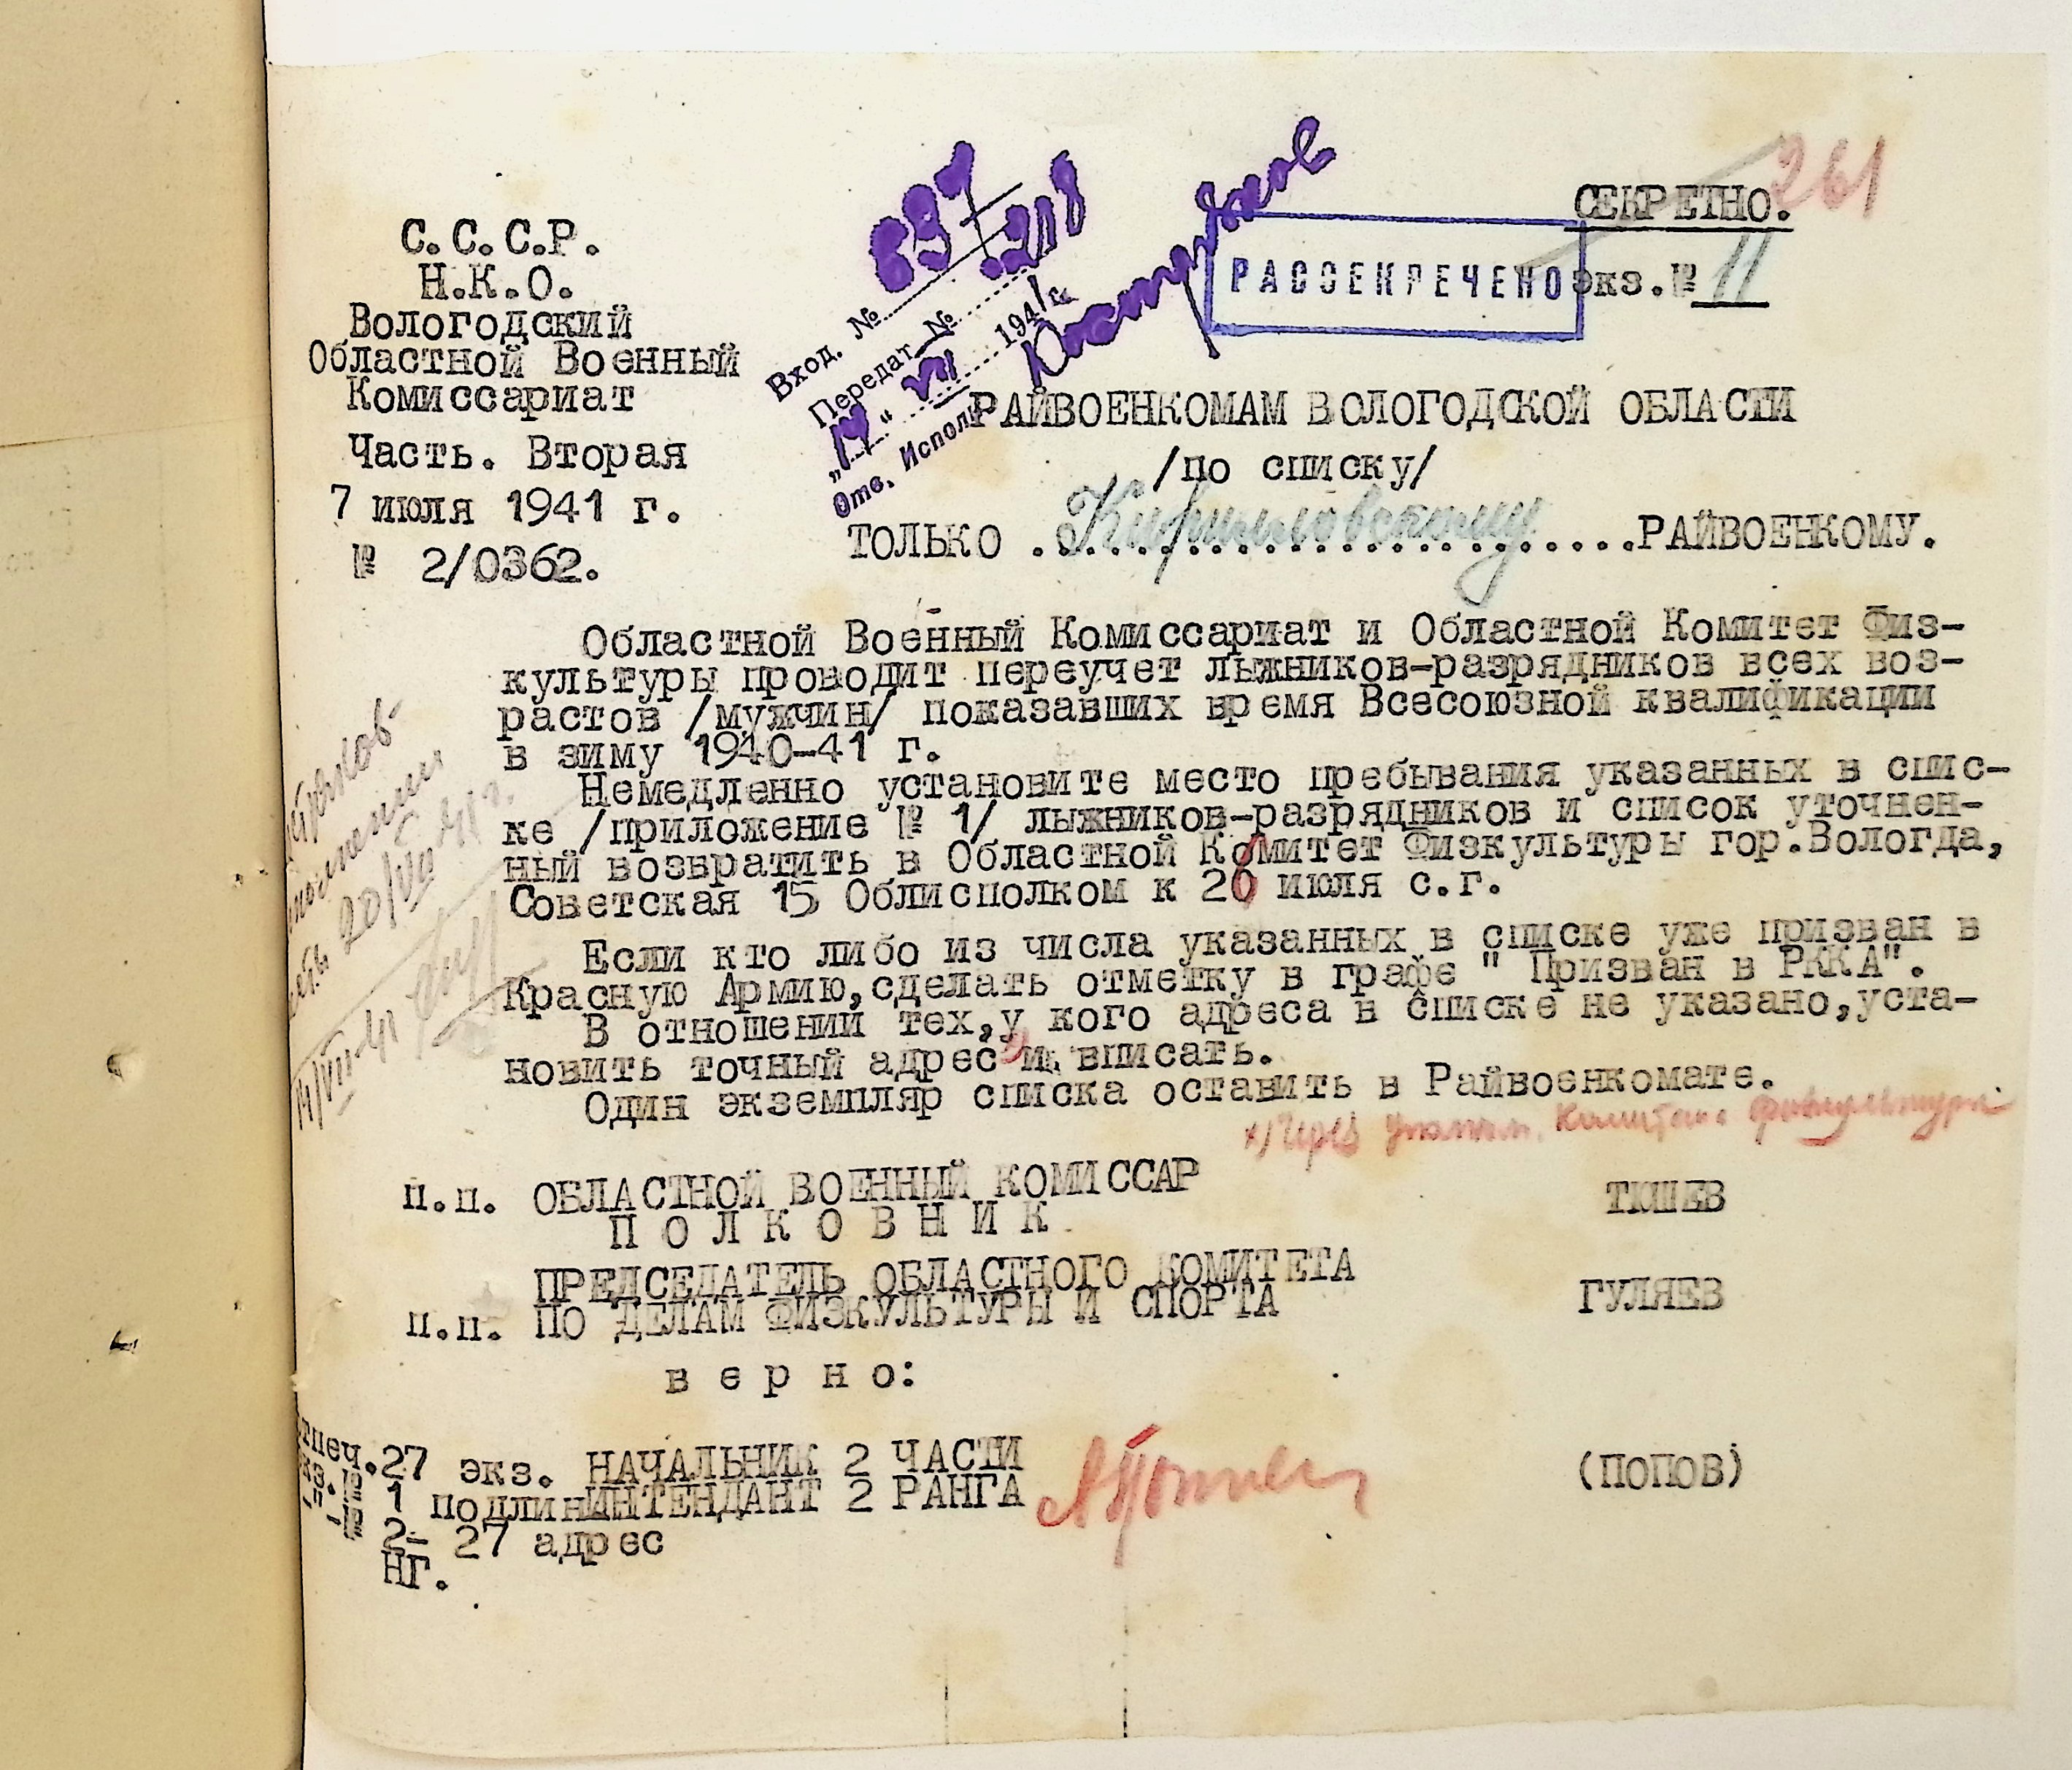 261
СЕКРЕТНО.
РАССЕКРЕЧЕНО
экз.№ 11
С.С.С.Р.
Н.К.О.
Вологодский
Областной Военный
Комиссариат
Часть. Вторая
7 июля 1941 г.
№ 2/0362.
Вход. №
Передат. № 218
"14" VII 1941 г.
Отв. Исполн
РАЙВОЕНКОМАМ ВОЛОГОДСКОЙ ОБЛАСТИ
/по списку/
ТОЛЬКО Кирилловскому РАЙВОЕНКОМУ.
Областной Военный Комиссариат и Областной Комитет Физ-
культуры проводит переучет лыжников-разрядников всех воз-
растов /мужчин/ показавших время Всесоюзной квалификации
в зиму 1940-41 г.
Немедленно установите место пребывания указанных в спис-
ке /приложение № 1/ лыжников-разрядников и список уточнен-
ный возвратить в Областной Комитет Физкультуры гор.Вологда,
Советская 15 Облисполком к 20 июля с.г.
Если кто либо из числа указанных в списке уже призван в
Красную Армию,сделать отметку в графе " Призван в РККА".
В отношении тех,у кого адреса в списке не указано,уста-
новить точный адрес и вписать.
Один экземпляр списка оставить в Райвоенкомате.
х/ Через Комитета физкультуры
20/VII 41 г.
14/VII-41
п.п. ОБЛАСТНОЙ ВОЕННЫЙ КОМИССАР ТЮШЕВ
ПОЛКОВНИК
ПРЕДСЕДАТЕЛЬ ОБЛАСТНОГО КОМИТЕТА
п.п. ПО ДЕЛАМ ФИЗКУЛЬТУРЫ И СПОРТА ГУЛЯЕВ
верно:
НАЧАЛЬНИК 2 ЧАСТИ
ИНТЕНДАНТ 2 РАНГА (ПОПОВ)
тпеч.27 экз.
кз.№ 1 подлин
"-№ 2- 27 адрес
НГ.